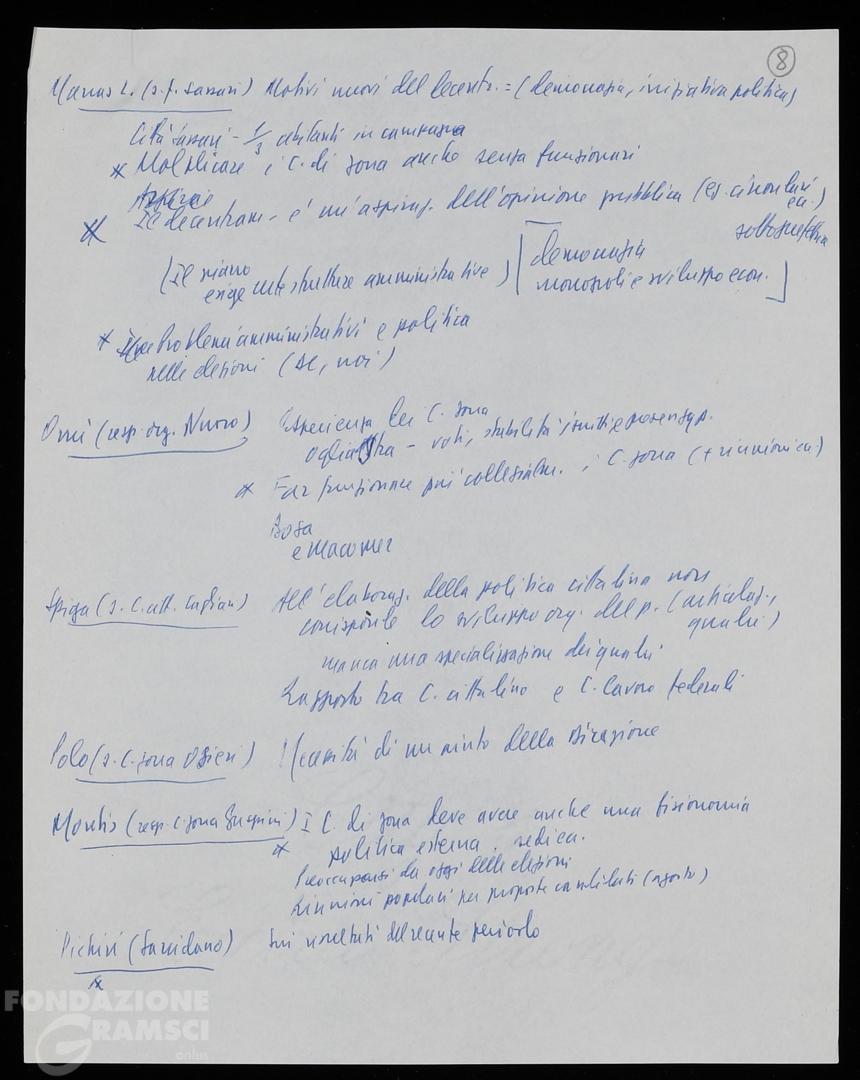 8
Manus L. (s. f. Sassari) Motivi nuovi del decentr. = (democrazia, iniziativa politica)
Città Sassari - 1/3 abitanti in campagna
* Moltiplicare i C. di zona anche senza funzionari
* Il decentram. è un'aspiraz. dell'opinione pubblica (es. circolari ecc.)
sottoprefettura
(Il piano
esige altre strutture amministrative) [democrazia
monopoli e sviluppo econ.]
* Problemi amministrativi e politica
nelle elezioni (DC, noi)
Orrù (resp. org. Nuoro) Esperienza dei C. zona
Ogliastra - voti, stabilità iscritti e
* Far funzionare più collegialm. i C. zona (+ riunioni ecc.)
Bosa
e Macomer
Spiga (s. C. citt. Cagliari) All'elaboraz. della politica cittadina non
corrisponde lo sviluppo org. del p. (articolaz., quadri)
manca una specializzazione dei quadri
Rapporto tra C. cittadino e C. lavoro federali
Polo (s. C. zona Ozieri) Necessità di un aiuto della Direzione
Montis (resp. C. zona Guspini) I C. di zona deve avere anche una fisionomia
* politica esterna, sedi ecc.
Preoccuparsi da oggi delle elezioni
Riunioni popolari per proposte candidati (agosto)
Pichiri (Sarcidano) Sui risultati del recente periodo
*
FONDAZIONE
GRAMSCI
onlus